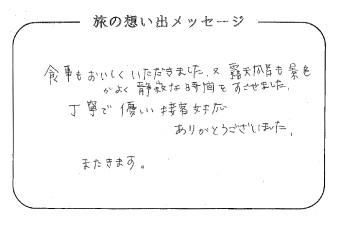 旅の想い出メッセージ
食事もおいしくいただきました。又 露天風呂も景色
がよく 静寂な時間をすごせました。
丁寧で優しい接客対応
ありがとうございました。
またきます。